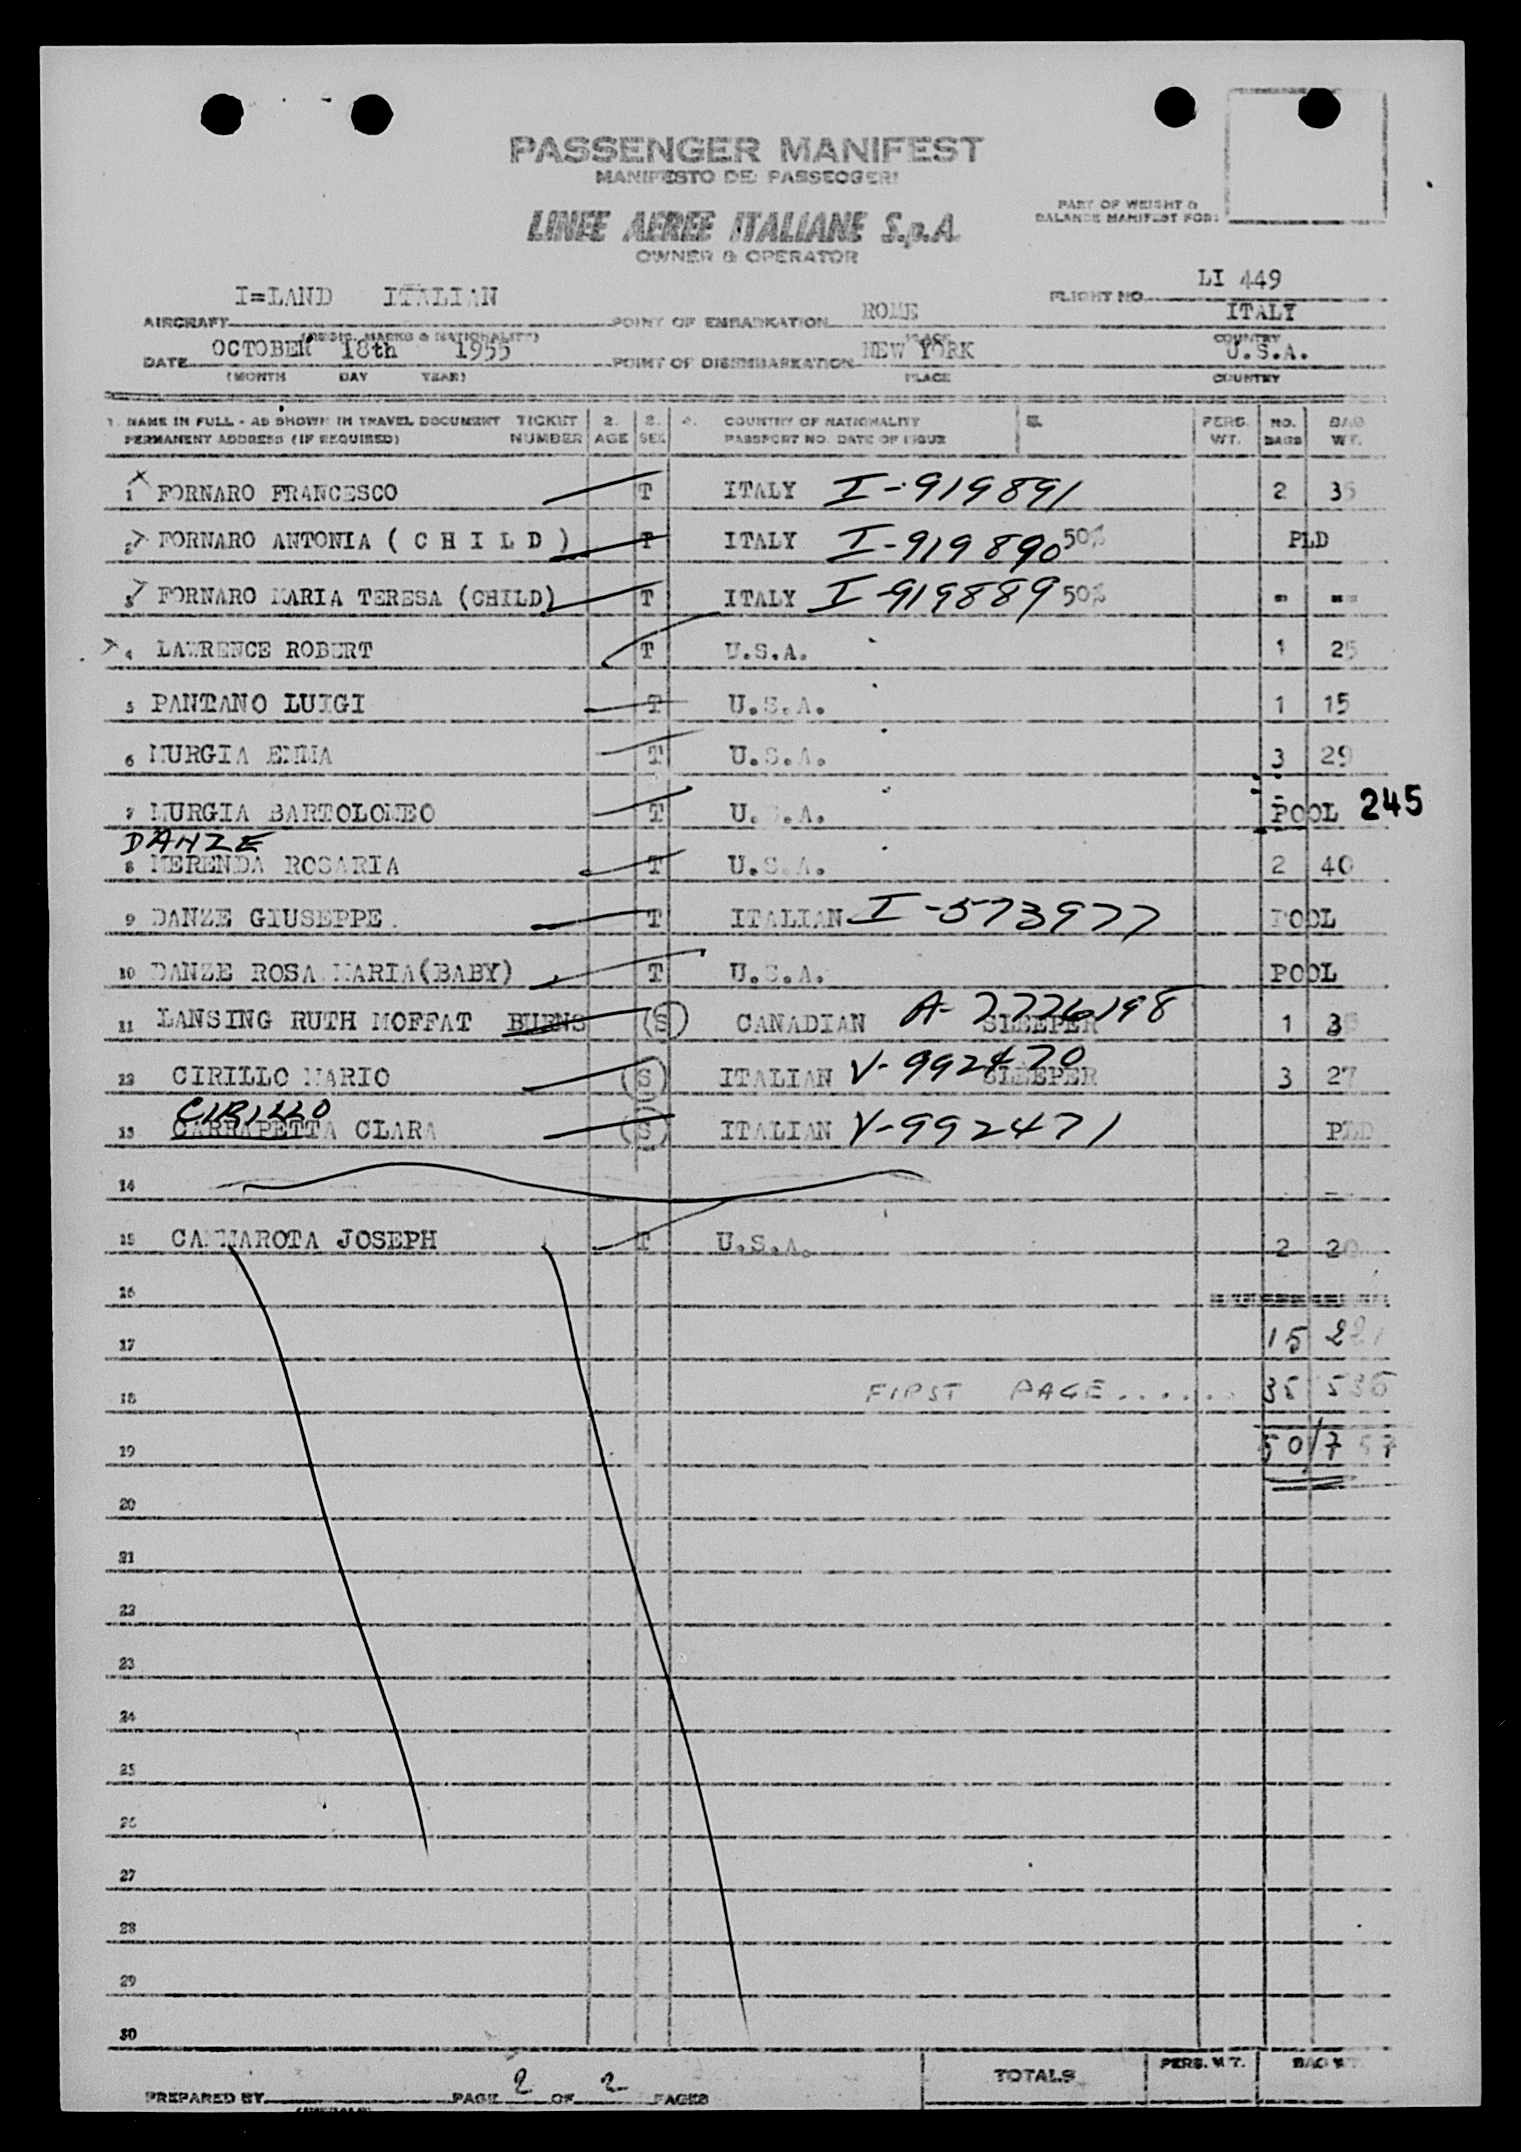 PASSENGER MANIFEST
MANIFESTO DEI PASSEGGERI
LINEE AEREE ITALIANE S.p.A.
OWNER & OPERATOR
PART OF WEIGHT &
BALANCE MANIFEST FOR:
LI 449
FLIGHT NO.
I=LAND ITALIAN ROME ITALY
AIRCRAFT POINT OF EMBARKATION
(REGIS. MARKS & NATIONALITY) PLACE COUNTRY
OCTOBER 18th 1955 NEW YORK U.S.A.
DATE POINT OF DISEMBARKATION
(MONTH DAY YEAR) PLACE COUNTRY
1. NAME IN FULL - AS SHOWN IN TRAVEL DOCUMENT TICKET 2. 3. 4. COUNTRY OF NATIONALITY 5. PERS. NO. BAG
PERMANENT ADDRESS (IF REQUIRED) NUMBER AGE SEX PASSPORT NO. DATE OF ISSUE WT. BAGS WT.
1 FORNARO FRANCESCO T ITALY I-919891 2 35
2 FORNARO ANTONIA ( C H I L D ) T ITALY I-919890 50% PLD
3 FORNARO MARIA TERESA (CHILD) T ITALY I-919889 50% - --
4 LAWRENCE ROBERT T U.S.A. 1 25
5 PANTANO LUIGI T U.S.A. 1 15
6 MURGIA EMMA T U.S.A. 3 29
7 MURGIA BARTOLOMEO T U.S.A. POOL 245
DANZE
8 MERENDA ROSARIA T U.S.A. 2 40
9 DANZE GIUSEPPE. T ITALIAN I-573977 POOL
10 DANZE ROSA MARIA(BABY) T U.S.A. POOL
11 LANSING RUTH MOFFAT BURNS (S) CANADIAN A-7726198 SLEEPER 1
12 CIRILLO MARIO (S) ITALIAN V-992470 SLEEPER 3 27
CIRILLO
13 CARRAPETTA CLARA (S) ITALIAN V-992471 PLD
14
15 CAMMAROTA JOSEPH T U.S.A. 2 20
16
17 15 221
18 FIRST PAGE....... 35 536
19 50/757
20
21
22
23
24
25
26
27
28
29
30
PREPARED BY PAGE 2 OF 2 PAGES TOTALS PERS. WT. BAG WT.